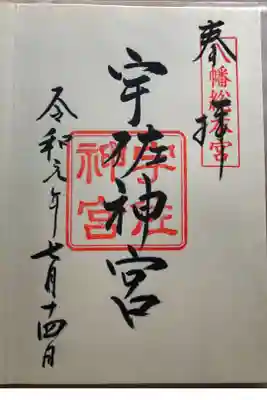 奉拝
八幡総本宮
宇佐神宮
宇佐神宮
令和元年七月十四日